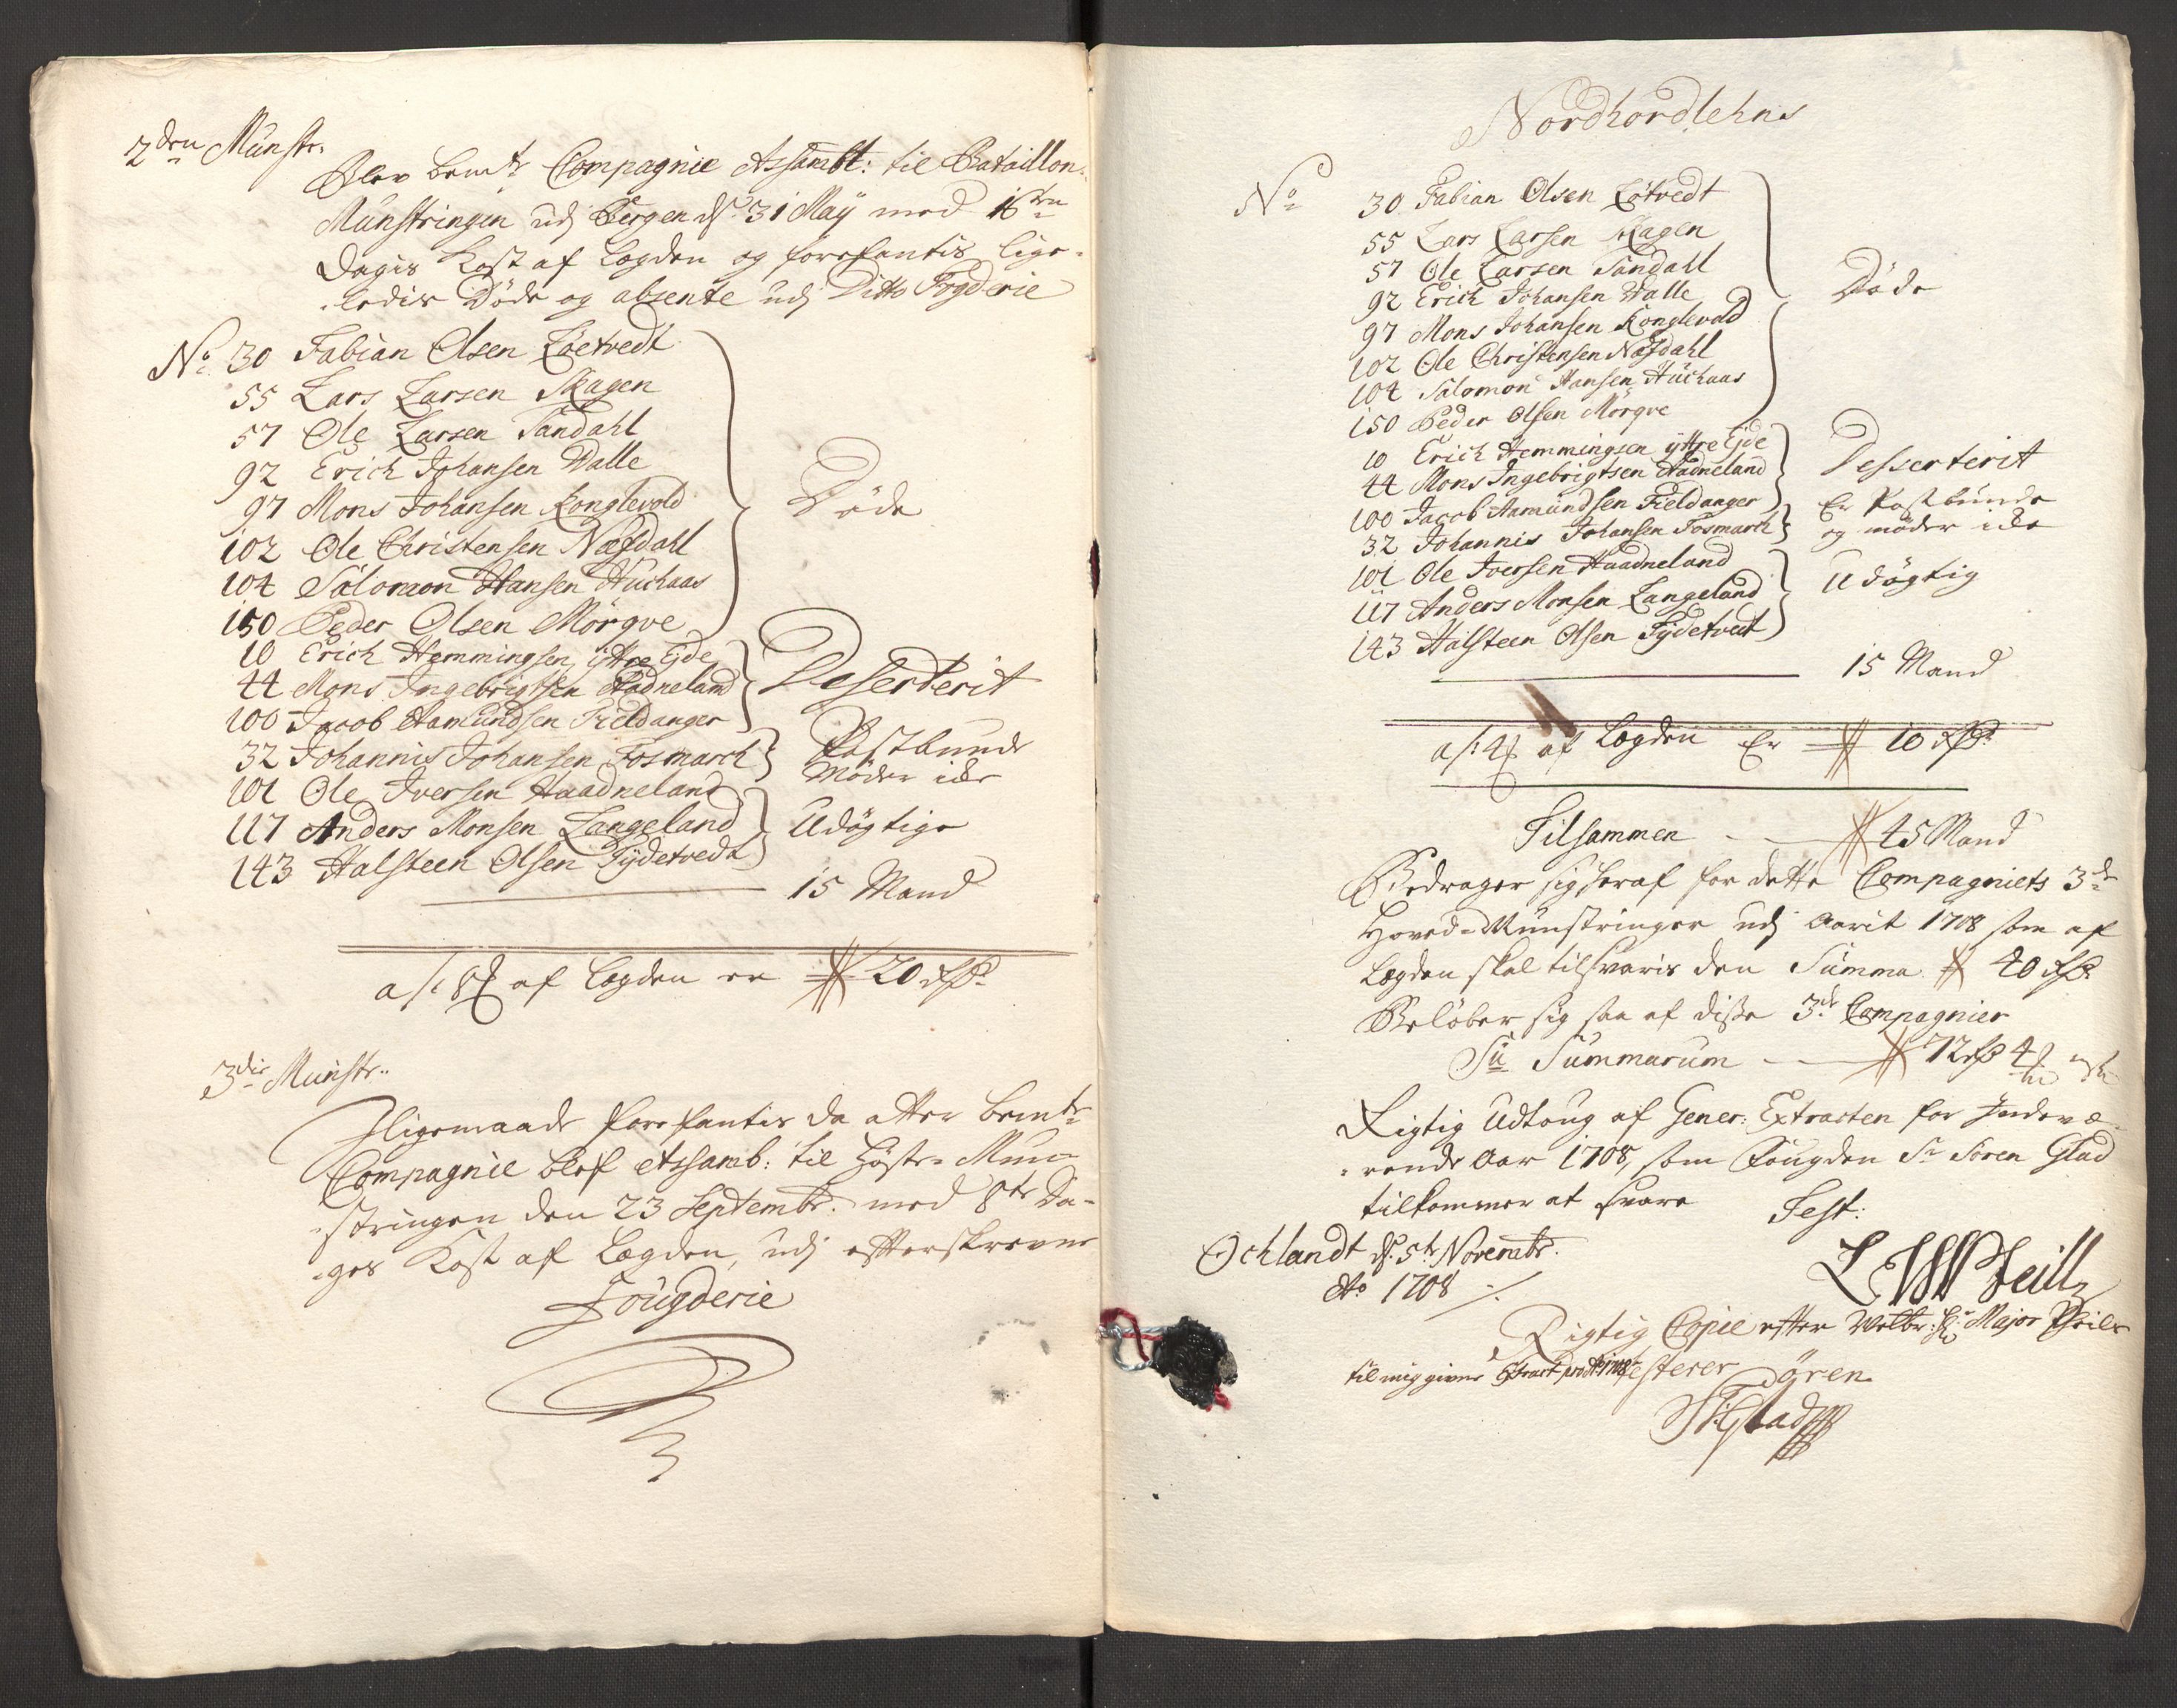 2den Münstr.
Blev bemte Compagnie Assambt: til Bataillon
Münstringen udj Bergen d: 31 Maÿ med 16ten
Dagis Kost af Legden og forefantis lige-
ledis Döde og absente udj Ditto Fogderie
No 30 Fabian Olsen Löetvedt
55 Lars Larsen Skagen
57 Ole Larsen Sandahl
92 Erich Johansen Walle
97 Mons Johansen Konglevold
102 Ole Christensen Næsdahl
104 Salomon Hansen Huchaas
150 Peder Olsen Mörqve
Döde
10 Erich Hemmingsen ÿttre Ejde
44 Mons Ingebrigtsen Hadneland
100 Jacob Aamundsen Fieldanger
Deserterit
32 Johannis Johansen Fosmarch
Postbunde
Möder icke
101 Ole Iversen Haadneland
117 Anders Monsen Langeland
143 Halsteen Olsen Tÿdetvedt
Udögtige
15 Mand
af Legden er 20
3die Münstr.
Iligemaade forefantis da atter bemte
Compagnie blef Assamb: til Höste Mün-
stringen den 23 Septembr. med 8te Da-
ges Kost af Legden, udj efterskrevne
Fougderie
Nordhordlehns
No 30 Fabian Olsen Lötvedt
55 Lars Larsen Skagen
57 Ole Larsen Sandall
92 Erich Johansen Walle
97 Mons Johansen Konglevold
102 Ole Christensen Næsdahl
104 Salomon Hansen Huchaas
150 Peder Olsen Mörqve
Döde
10 Erich Hemmingsen ÿttre Ejde
44 Mons Ingebrigtsen Hadneland
100 Jacob Aamundsen Fieldanger
Desserterit
32 Johannis Johansen Fosmarch
Er Postbunde
og möder icke
101 Ole Iversen Haadneland
117 Anders Monsen Langeland
143 Halsteen Olsen Tÿdetvedt
Udögtig
15 Mand
af Legden Er 10
Tilsammen 45 Mand
Bedrager sig heraf for dette Compagniets 3de
Hoved-Münstringer udj Aarit 1708 som af
Legden skal tilsvaris den Summa 40
Belöber sig saa af disse 3de Compagnier
Sü Summarum 72
Rigtig Udtoug af Gener: Extracten for Indevæ-
rende Aar 1708, som Fougden Sr Sören Glad
tilkommer at svare
Test:
Ochlandt d: 5te Novembr.
Ao 1708
Rigtig Copie efter Welbr: Hr Major Pheils
til mig givne Extract Testerer Sören